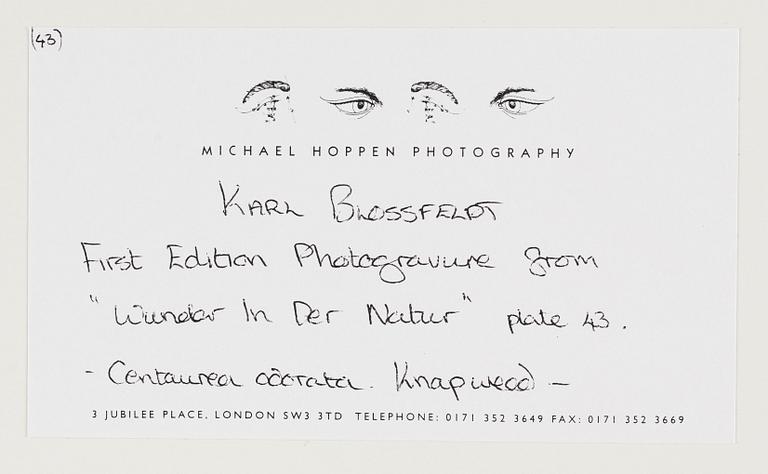 (43)
MICHAEL HOPPEN PHOTOGRAPHY
KARL BLOSSFELDT
First Edition Photogravure from
"Wunder In Der Natur" plate 43.
- Centaurea odorata. Knapweed -
3 JUBILEE PLACE, LONDON SW3 3TD TELEPHONE: 0171 352 3649 FAX: 0171 352 3669